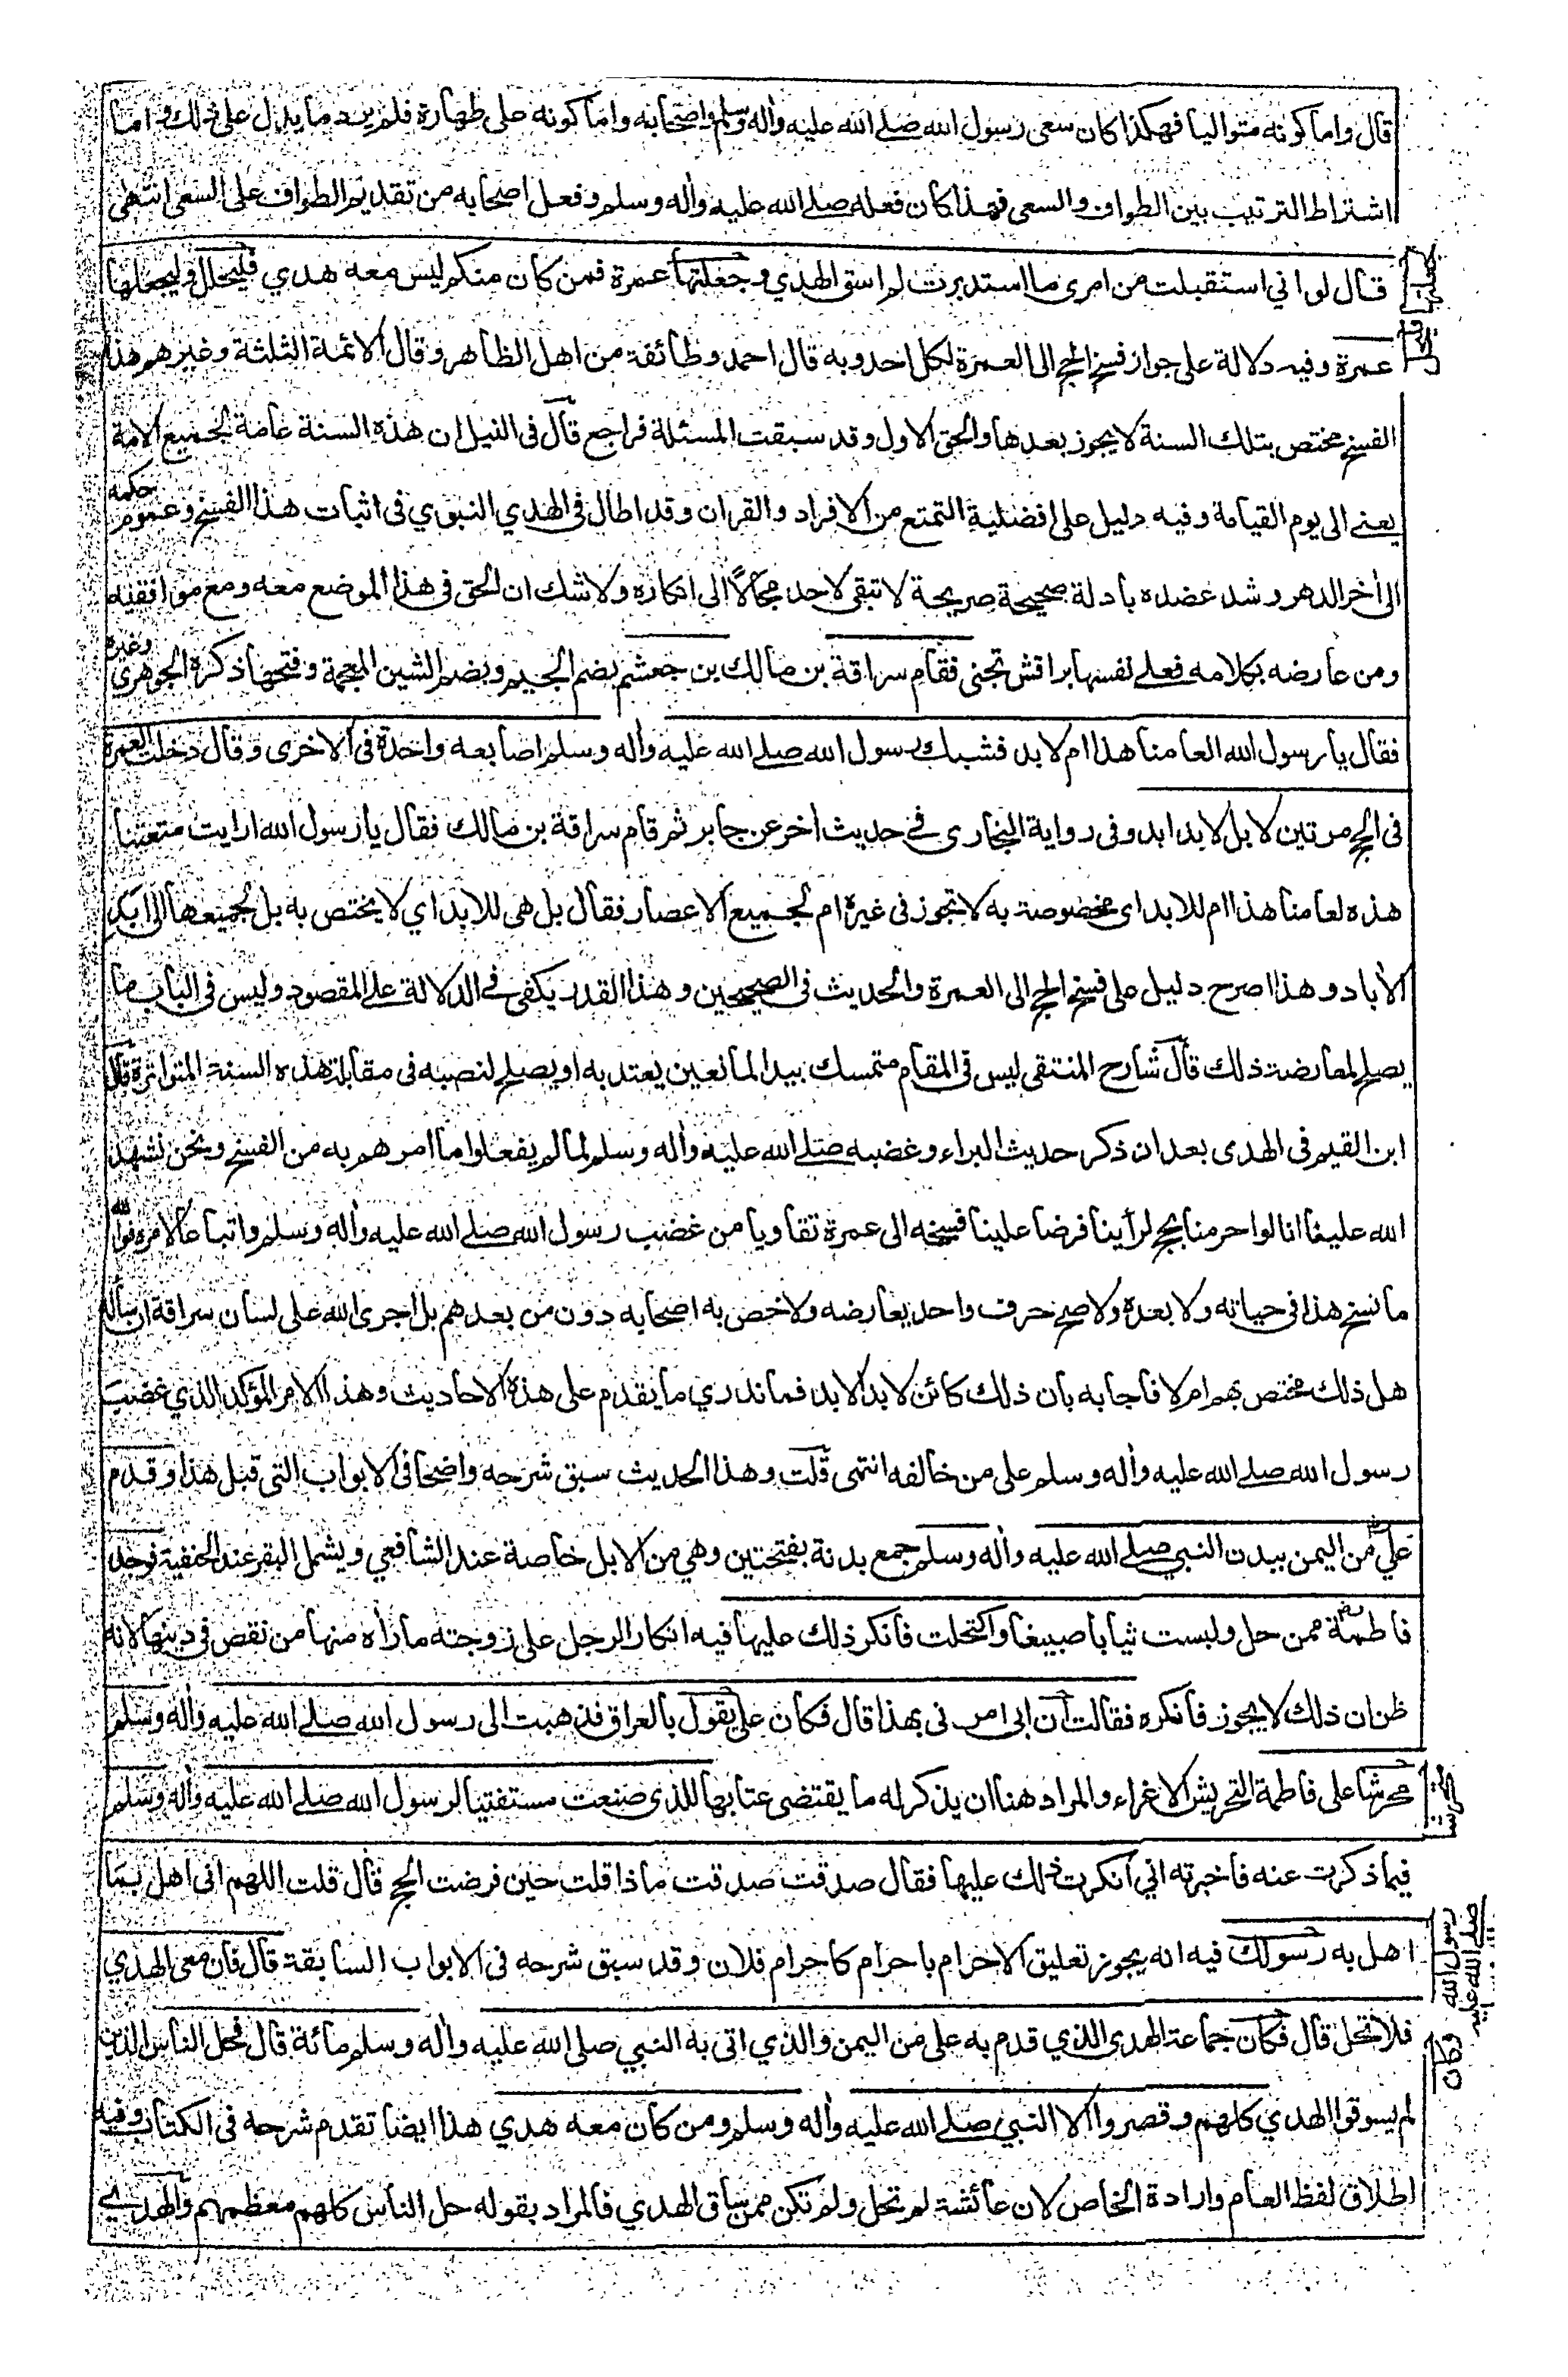 قال واما كونه متواليا فهكذا كان سعى رسول الله صلے الله عليه وأله وسلم واصحابه واما كونه على طهارة فلم يرد ما يدل على ذلك واما
اشتراط الترتيب بين الطواف والسعى فهذا كان فعله صلے الله عليه وأله وسلم وفعل اصحابه من تقديم الطواف على السعى انتهى
قال لو اني استقبلت من امرى ما استدبرت لم اسق الهدي وجعلتها عمرة فمن كان منكم ليس معه هدي فليحلل وليجعلها
عمرة وفيه دلالة على جواز فسخ الحج الى العمرة لكل احد وبه قال احمد وطائفة من اهل الظاهر وقال الائمة الثلثة وغيرهم هذا
الفسخ مختص بتلك السنة لا يجوز بعدها والحق الاول وقد سبقت المسئلة فراجع قال فى النيل ان هذه السنة عامة لجميع الامة
يعنے الى يوم القيامة وفيه دليل على افضلية التمتع من الافراد والقران وقد اطال فى الهدي النبوي فى اثبات هذا الفسخ وعموم حكمه
الى أخر الدهر وشد عضده بأدلة صحيحة صريحة لا تبقى لاحد مجالًا الى انكاره ولا شك ان الحق فى هذا الموضع معه ومع موافقيه
ومن عارضه بكلامه فعلے نفسها براقش تجنى فقام سراقة بن مالك بن جعشم بضم الجيم وبضم الشين المعجمة وفتحها ذكره الجوهرى وغيره
فقال يا رسول الله العامنا هذا ام لابد فشبك رسول الله صلے الله عليه وأله وسلم اصابعه واحدة فى الاخرى وقال دخلت العمرة
فى الحج مرتين لا بل لابد ابد وفى رواية البخارى فے حديث أخر عن جابر ثم قام سراقة بن مالك فقال يا رسول الله ارايت متعتنا
هذه لعامنا هذا ام للابد اى مخصوصة به لا تجوز فى غيره ام لجميع الاعصار فقال بل هى للابد اي لا يختص به بل لجميعها الى ابد
الأباد وهذا اصرح دليل على فسخ الحج الى العمرة والحديث فى الصحيحين وهذا القدر يكفى فے الدلالة علے المقصود وليس فى الباب ما
يصلح لمعارضة ذلك قال شارح المنتقى ليس فى المقام متمسك بيد المانعين يعتد به او يصلح لنصبه فى مقابلة هذه السنة المتواترة قال
ابن القيم فى الهدى بعد ان ذكر حديث البراء وغضبه صلے الله عليه وأله وسلم لما لم يفعلوا ما امرهم به من الفسخ ونحن نشهد
الله علينا انا لو احرمنا بحج لرأينا فرضا علينا فسخه الى عمرة تفاديا من غضب رسول الله صلے الله عليه وأله وسلم واتباعا لامره فوالله
ما نسخ هذا فى حياته ولا بعده ولا صح حرف واحد يعارضه ولا خص به اصحابه دون من بعدهم بل اجرى الله على لسان سراقة ان سأله
هل ذلك مختص بهم ام لا فاجابه بان ذلك كائن لابد الابد فما ندري ما يقدم على هذه الاحاديث وهذا الامر المؤكد الذي غضب
رسول الله صلے الله عليه وأله وسلم على من خالفه انتهى قلت وهذا الحديث سبق شرحه واضحا فى الابواب التى قبل هذا وقدم
علي من اليمن ببدن النبي صلے الله عليه وأله وسلم جمع بدنة بفتحتين وهي من الابل خاصة عند الشافعي ويشمل البقر عند الحنفية فوجد
فاطمة ممن حل ولبست ثيابا صبيغا واكتحلت فأنكر ذلك عليها فيه انكار الرجل على زوجته ما رأه منها من نقص فى دينها لانه
ظن ان ذلك لا يجوز فأنكره فقالت ان ابى امرنى بهذا قال فكان على يقول بالعراق فذهبت الى رسول الله صلے الله عليه وأله وسلم
محرشا على فاطمة التحريش الاغراء والمراد هنا ان يذكر له ما يقتضى عتابها للذى صنعت مستفتيا لرسول الله صلے الله عليه وأله وسلم
فيما ذكرت عنه فاخبرته اني انكرت ذلك عليها فقال صدقت صدقت ماذا قلت حين فرضت الحج قال قلت اللهم انى اهل بما
اهل به رسولك فيه انه يجوز تعليق الاحرام باحرام كاحرام فلان وقد سبق شرحه فى الابواب السابقة قال فان معى الهدي
فلا تحل قال فكان جماعة الهدى الذي قدم به على من اليمن والذي اتى به النبي صلى الله عليه وأله وسلم مائة قال فحل الناس الذين
لم يسوقوا الهدي كلهم وقصروا الا النبي صلے الله عليه وأله وسلم ومن كان معه هدي هذا ايضا تقدم شرحه فى الكتاب وفيه
اطلاق لفظ العام وارادة الخاص لان عائشة لم تحل ولم تكن ممن ساق الهدي فالمراد بقوله حل الناس كلهم معظمهم والهدي
رسول الله
صلے الله عليه
وكان